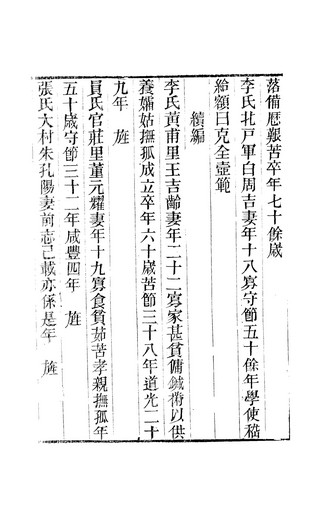 落備歴艱苦卒年七十餘歲
李氏北戸軍白周吉妻年十八寡守節五十餘年學使嵇
給額曰克全壼範
續編
李氏黃甫里王吉齡妻年二十二寡家甚貧傭鍼黹以供
養孀姑撫孤成立卒年六十歲苦節三十八年道光二十
九年 旌
員氏官莊里董元耀妻年十九寡食貧茹苦孝親撫孤年
五十歲守節三十二年咸豐四年 旌
張氏大村朱孔陽妻前志已載亦係是年 旌